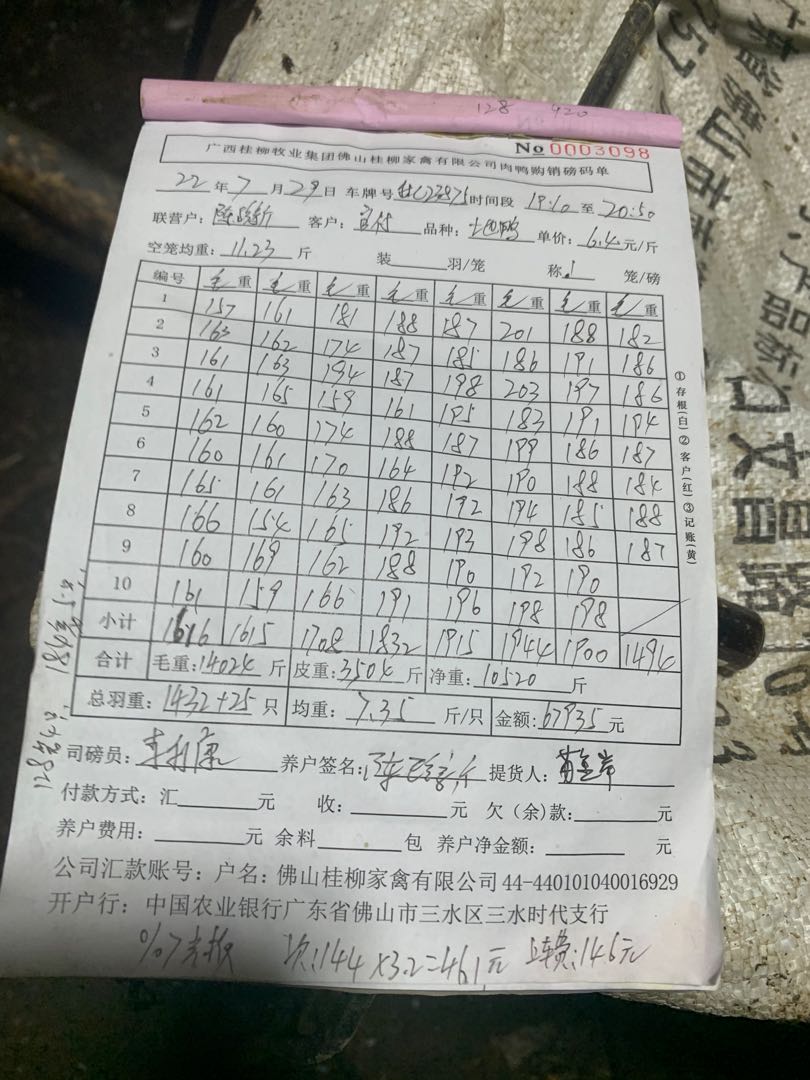 128 920
No 0003098
广西桂柳牧业集团佛山桂柳家禽有限公司肉鸭购销磅码单
22 年 7 月 29 日 车牌号 时间段 19:10 至 20:50
联营户: 客户: 品种: 单价: 6.4 元/斤
空笼均重: 11.23 斤 装 羽/笼 称 1 笼/磅
编号 毛重 毛重 毛重 毛重 毛重 毛重 毛重 毛重
1 157 161 181 188 187 201 188 182
2 163 162 174 187 185 186 191 186
3 161 163 194 187 198 203 197 186
4 161 165 159 16 195 183 191 194
5 162 160 174 188 187 199 186 187
6 160 161 170 164 192 190 188 184
7 165 161 163 186 192 194 185 188
8 166 154 165 192 193 198 186 187
9 160 169 162 188 190 192 190
10 161 159 166 191 196 198 198
小计 1616 1615 1708 1832 1915 1944 1900 1494
合计 毛重: 14024 斤 皮重: 3504 斤 净重: 10520 斤
总羽重: 1432+25 只 均重: 7.35 斤/只 金额: 67935 元
司磅员: 养户签名: 提货人:
付款方式: 汇 元 收: 元 欠(余)款: 元
养户费用: 元 余料 包 养户净金额: 元
公司汇款账号: 户名: 佛山桂柳家禽有限公司 44-440101040016929
开户行: 中国农业银行广东省佛山市三水区三水时代支行
次:144×3.2=461元 上车费:146元
①存根(白)②客户(红)③记账(黄)